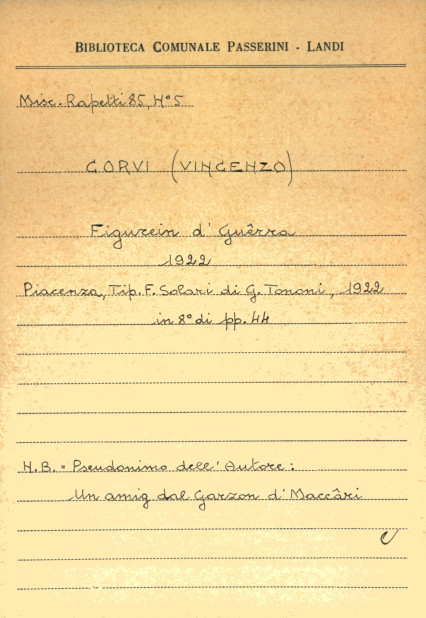 BIBLIOTECA COMUNALE PASSERINI - LANDI
Misc. Rapetti 85, N° 5
CORVI (VINCENZO)
Figurein d' Guêrra
1922
Piacenza, Tip. F. Solari di G. Tononi, 1922
in 8° di pp. 44
N.B. = Pseudonimo dell' Autore:
Un amig dal Garzon d' Maccâri
C